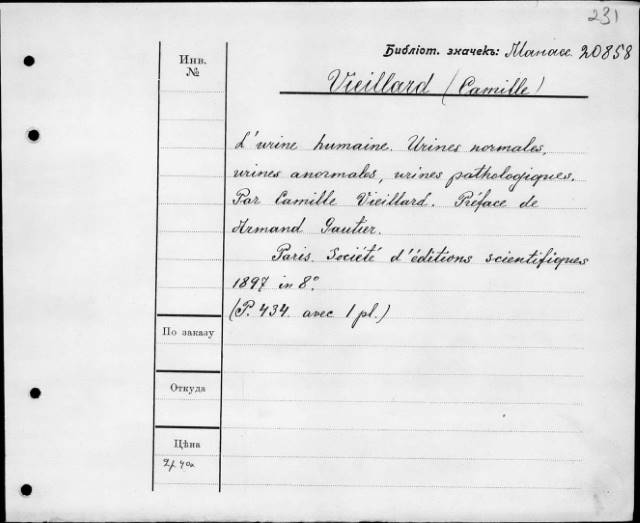 231
Инв.
№
Библіот. значекъ: Манасс. 20858
Vieillard (Camille)
L'urine humaine. Urines normales,
urines anormales, urines pathologiques.
Par Camille Vieillard. Préface de
Armand Gautier.
Paris. Société d'éditions scientifiques
1897 in 8°.
(P. 434. avec 1 pl.)
По заказу
Откуда
Цѣна